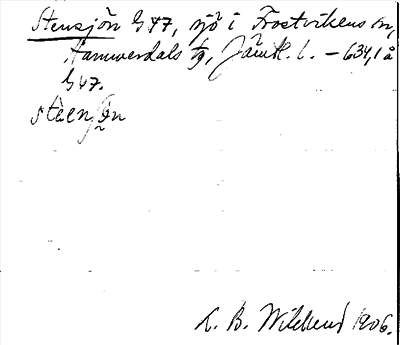 Stensjön G 47, sjö i Frostvikens sn,
Hammerdals tg, Jämtl. l. – 634,1 å
G 47.
stèenʃön
K. B. Wiklund 1906.